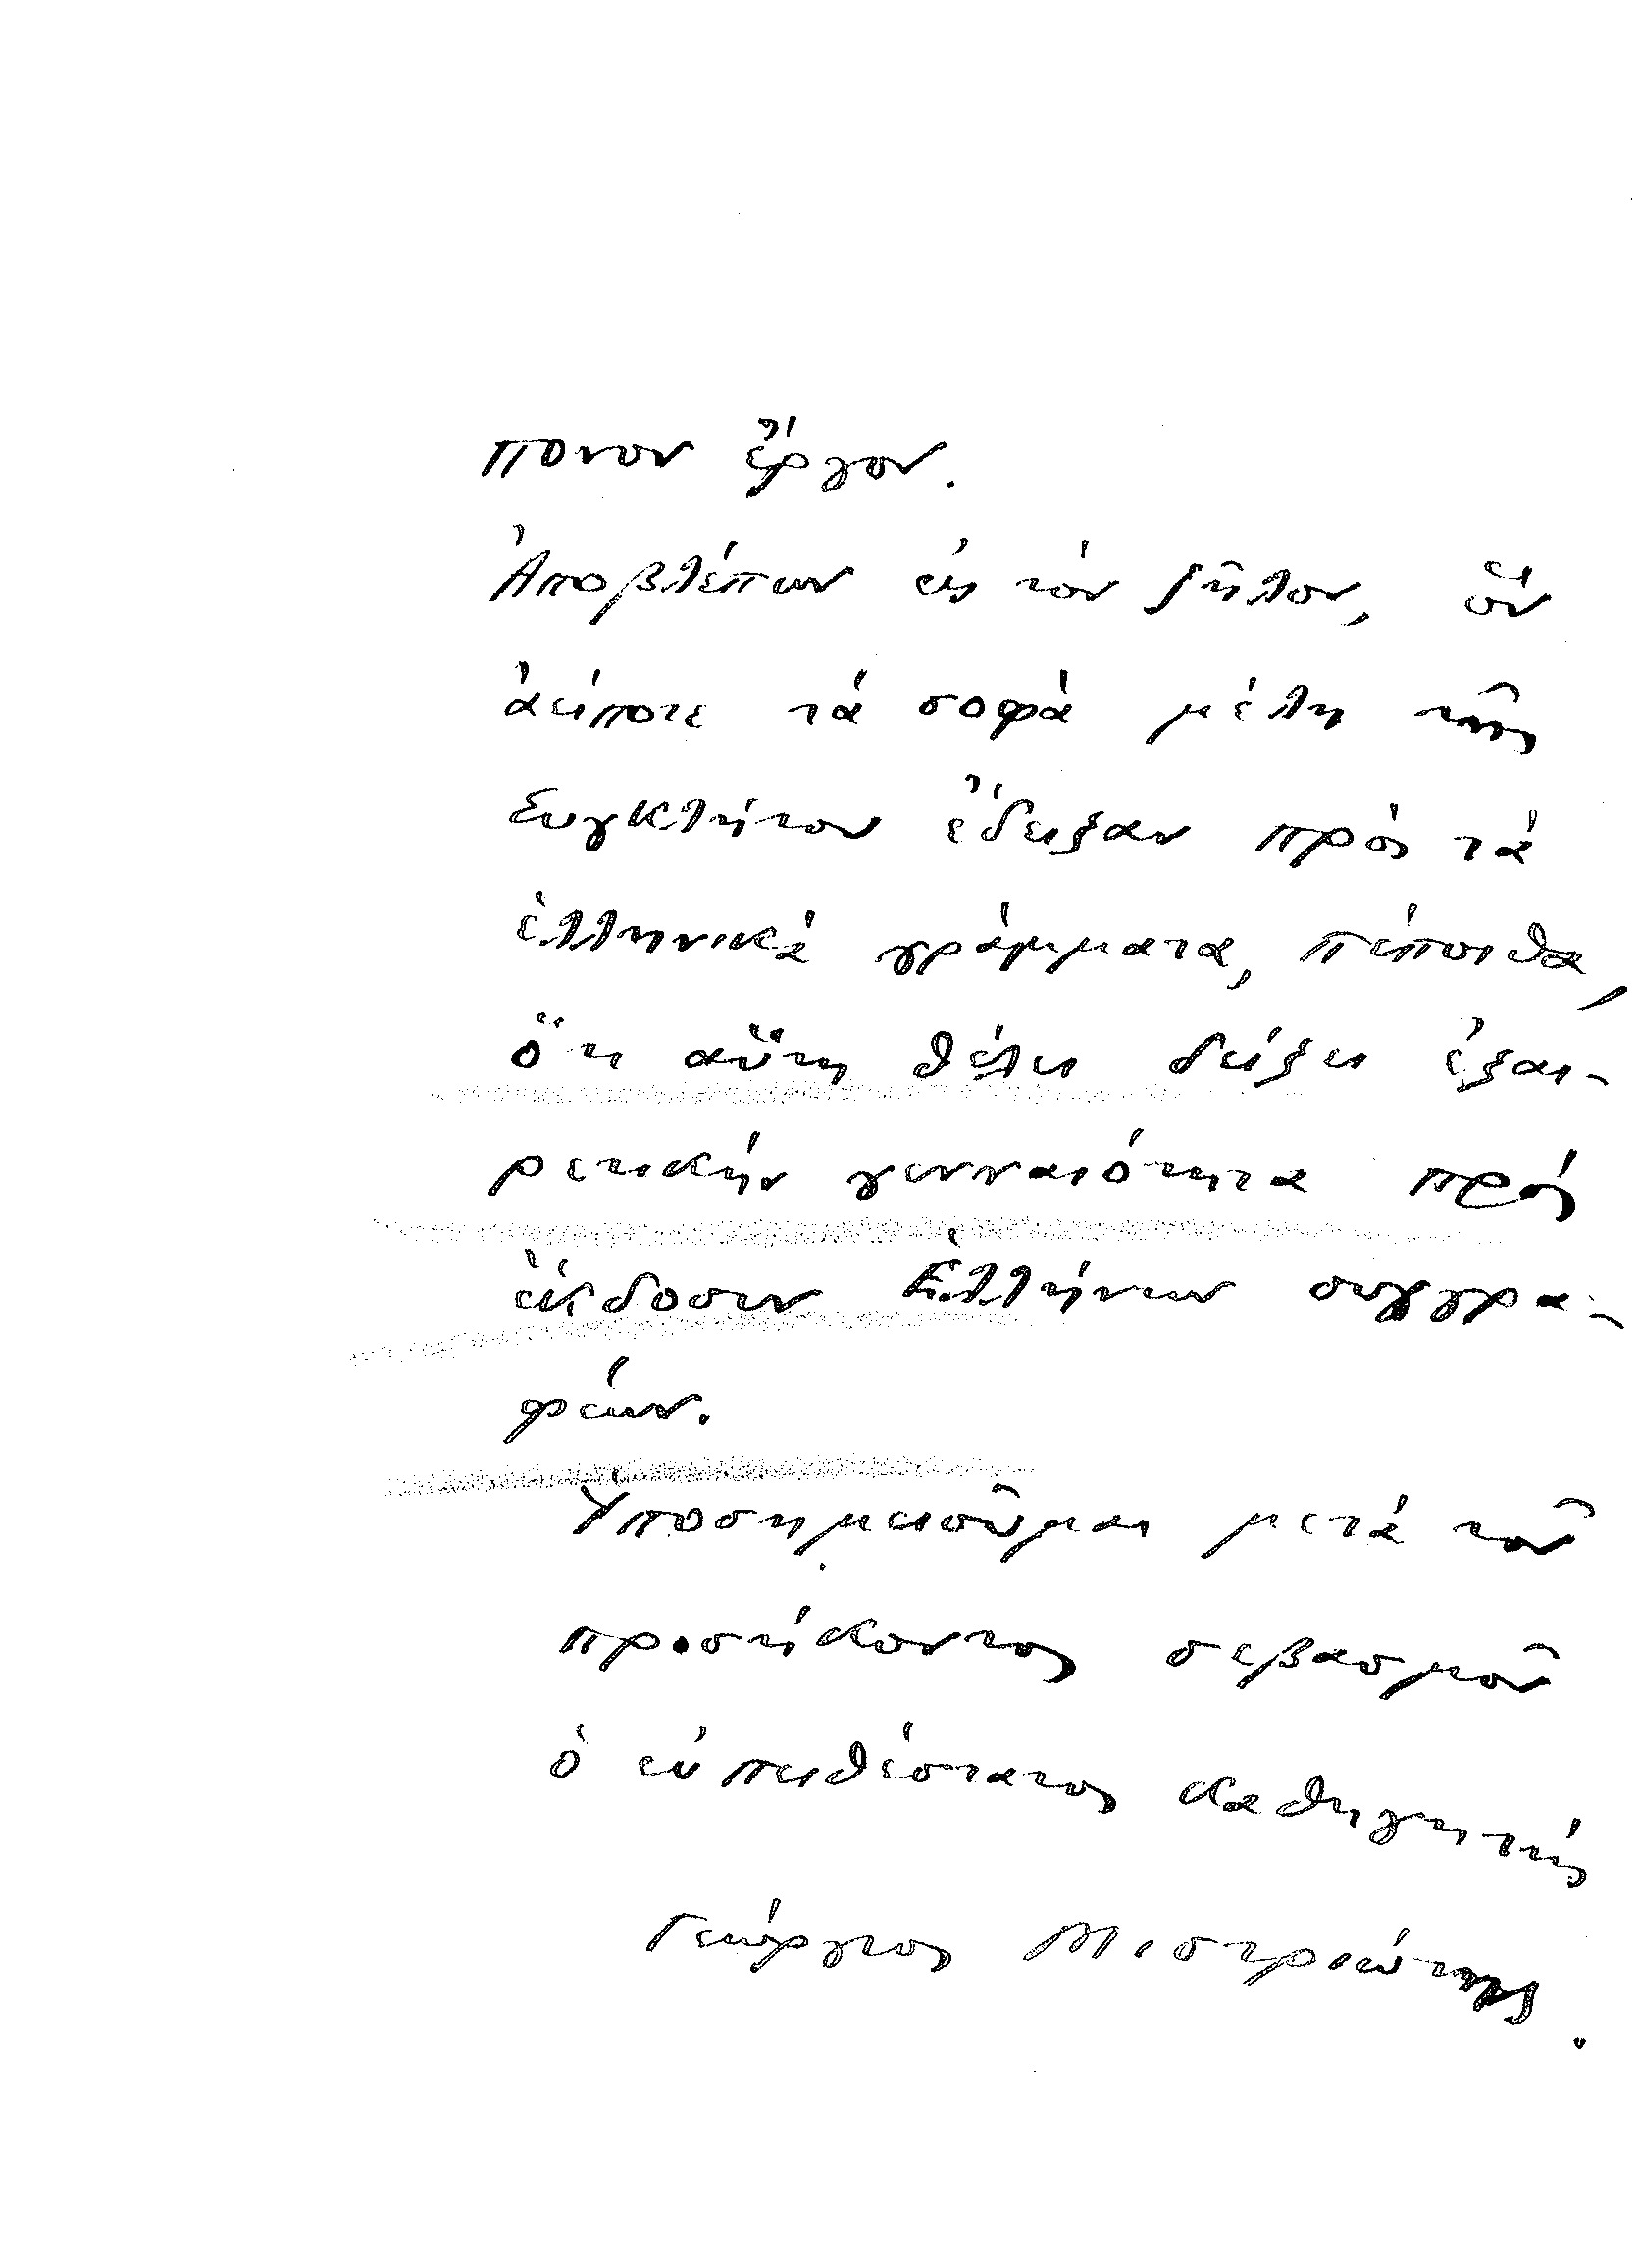 πονον ἔργον.
Ἀποβλέπων εἰς τὸν ζῆλον, ὃν
ἀείποτε τὰ σοφὰ μέλη τῆς
Συγκλήτου ἔδειξαν πρὸς τὰ
ἑλληνικὰ γράμματα, πέποιθα,
ὅτι αὕτη θέλει δείξει ἐξαι-
ρετικὴν γενναιότητα πρὸς
ἔκδοσιν Ἑλλήνων συγγρα-
φέων.
Ὑποσημειοῦμαι μετὰ τοῦ
προσήκοντος σεβασμοῦ
ὁ εὐπειθέστατος καθηγητὴς
Γεώργιος Μιστριώτης.